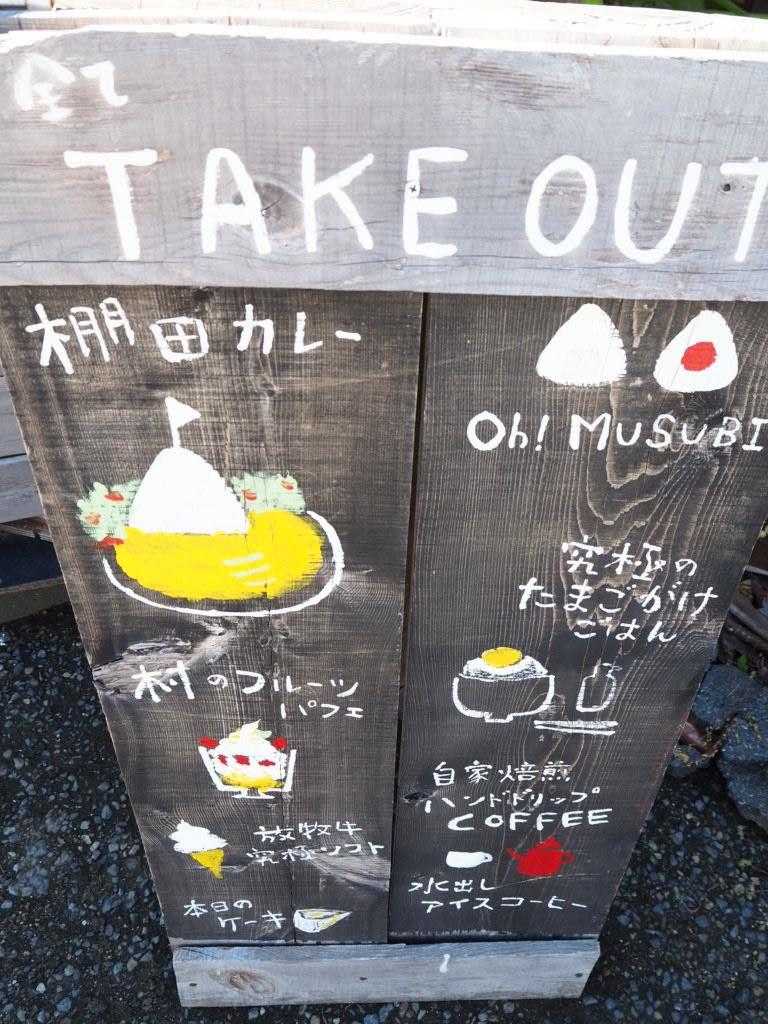 全て
TAKE OUT
棚田カレー
Oh! MUSUBI
究極の
たまごがけ
ごはん
村のフルーツ
パフェ
放牧牛
究極ソフト
本日の
ケーキ
自家焙煎
ハンドドリップ
COFFEE
水出し
アイスコーヒー